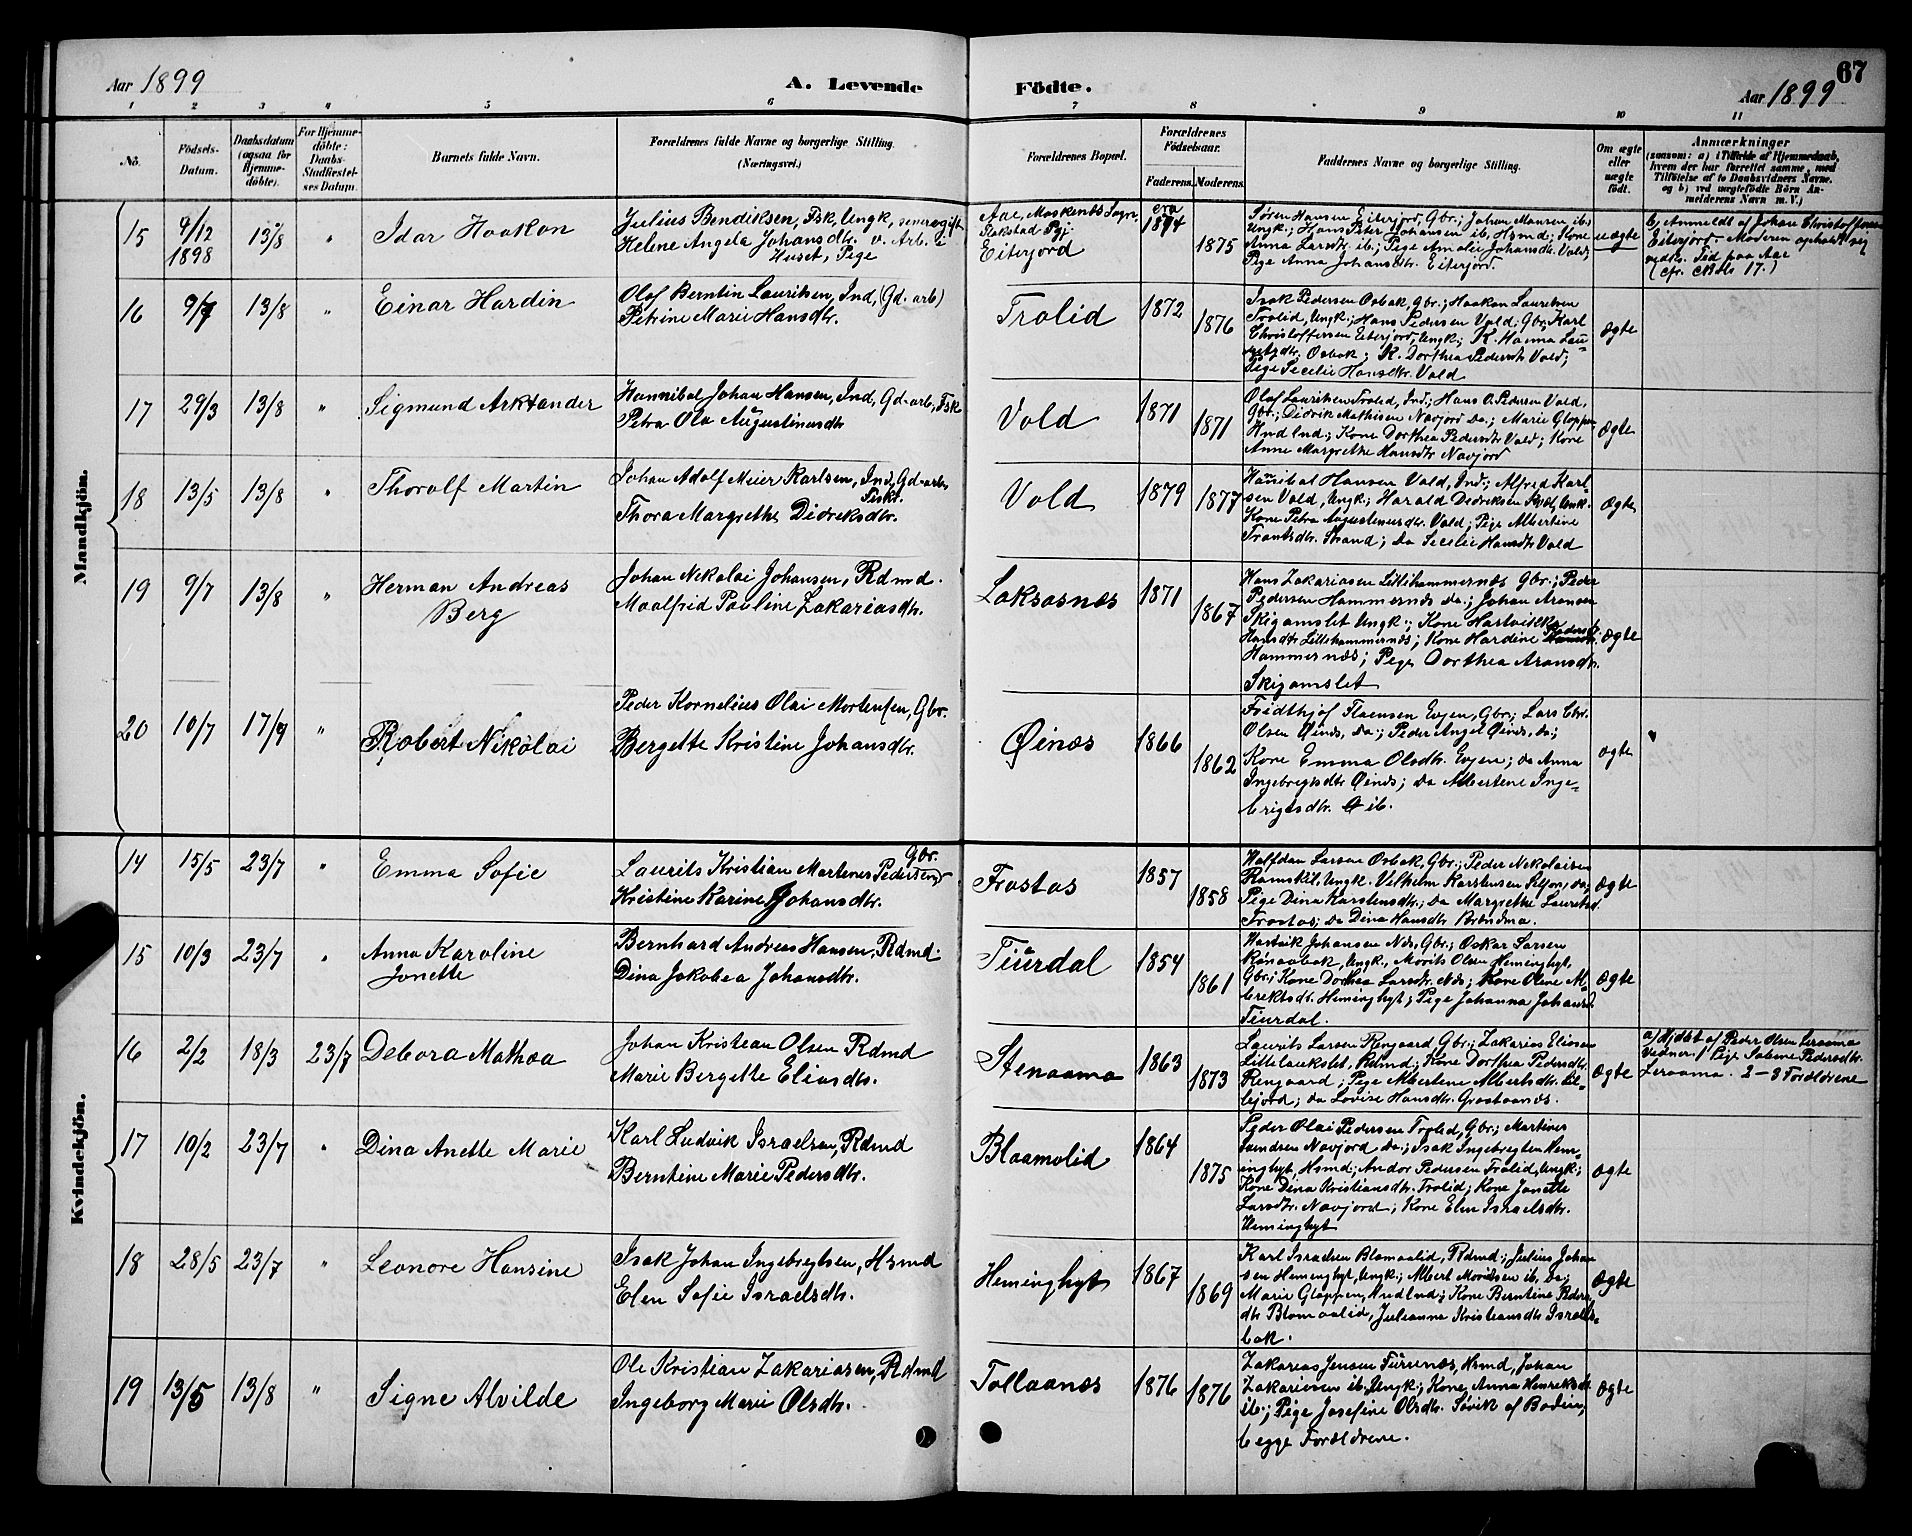 67
Aar 1899
A. Levende
Födte.
Aar 1899
1 2 3 4 5 6 7 8 9 10 11
No.
Födsels-
Datum.
Daabsdatum
(ogsaa for
Hjemme-
döbte).
For Hjemme-
döbte:
Daabs-
Stadfæstel-
ses Datum.
Barnets fulde Navn.
Forældrenes fulde Navne og borgerlige Stilling.
(Næringsvei.)
Forældrenes Bopæl.
Forældrenes
Födselsaar.
Faderens. Moderens.
Faddernes Navne og borgerlige Stilling.
Om ægte
eller
uægte
født.
Anmærkninger
(saasom: a) i Tilfælde af Hjemmedaab,
hvem der har forrettet samme, med
Tilføielse af to Daabsvidners Navne,
og b) ved uægtefödte Börn An-
melderens Navn m. V.)
Mandkjön.
15 9/12 1898 13/8 " Idar Haakon
Julius Bendiksen, Fsk, Ungk, senere gift
Helene Angela Johansdtr. v. Arb. i
Huset, Pige
Aae, Moskenes Sogn,
Flakstad Pgj.
Eiterjord
cra
1874 1875
Søren Hansen Eiterjord, Gbr.; Johan Hansen ib.
Ungk.; Hans Peter Johansen ib, Hsmd; Kone
Anna Larsdtr. ib.; Pige Amalie Johansdtr. Vold;
Pige Anna Johansdtr. Eiterjord.
uægte
b, Anmeldt af Johan Christoffersen
Eiterjord. Moderen opholdt sig
vedk. Tid paa Aae
(cfr. No 17.)
16 9/7 13/8 " Einar Hardin
Olaf Berntin Lauritsen, Ind, (Gd-arb)
Petrine Marie Hansdtr.
Trolid 1872 1876
Isak Pedersen Osbak, Gbr.; Haakon Lauritsen
Trolid, Ungk.; Hans Pedersen Vold, Gbr; Karl
Christoffersen Eiterjord, Ungk; K. Hanna Lau-
ritzdtr. Osbak; K. Dorthea Pedersdtr Vold;
Pige Secelie Hansdtr. Vold
ægte
17 29/3 13/8 " Sigmund Arktander
Hannibal Johan Hansen, Ind, Gd-arb, Fsk
Petra Ola Augustinusdtr
Vold 1871 1871
Olaf Lauritsen Trolid, Ind.; Hans O. Pedersen Vold,
Gbr.; Didrik Mathisen Navjord do.; Marie Gloppen
Hndlnd; Kone Dorthea Pedersdtr Vold; Kone
Anne Margrethe Hansdtr Navjord
ægte
18 13/5 13/8 " Thoralf Martin
Johan Adolf Meier Karlsen, Ind, Gd-arb,
Fisk.
Thora Margrethe Didriksdtr.
Vold 1879 1877
Hannibal Hansen Vold, Ind; Alfred Karl-
sen Vold, Ungk.; Harald Dedriksen Ungk.
Kone Petra Augustinusdtr Vold; Pige Albertine
Frantsdtr. Strand; do Secelie Hansdtr Vold
ægte
19 9/7 13/8 " Herman Andreas
Berg
Johan Nikolai Johansen, Rdmd.
Maalfrid Pauline Zakariasdtr.
Laksosnæs 1871 1867
Hans Zakariasen Lillehammernæs Gbr.; Peder
Pedersen Hammernæs do.; Johan Aronsen
Skigamslet Ungk.; Kone Hartvikka
Hansdtr. Lillehammernæs; Kone Hardine Pedersdtr.
Hammernæs; Pige Dorthea Aronsdtr.
Skigamslet
ægte
20 10/7 17/9 " Robert Nikolai
Peder Kornelius Olai Mortensen, Gbr.
Bergette Kristine Johansdtr.
Øinæs 1866 1862
Fridthjof Evjen, Gbr; Lars Chr.
Olsen Øinæs, do.; Peder Angel Øinæs, do.;
Kone Emma Olsdtr. Evjen; do Anna
Ingebregtsdtr Øinæs; do Albertene Inge-
brigtsdtr. ib.
ægte
Kvindekjön.
14 15/5 23/7 " Emma Sofie
Laurits Kristian Martenes Pedersen Gbr.
Kristine Karine Johansdtr.
Frostos 1857 1858
Halfdan Larsen Osbak, Gbr; Peder Nikolaisen
Ramskil, Ungk. Vilhelm Karstensen do;
Pige Dina Karstensdtr.; do Margrethe Lauritsd.
Frostos; do Dina Hansdtr
ægte
15 10/3 23/7 " Anna Karoline
Jonette
Bernhard Andreas Hansen, Rdmd.
Dina Jakobea Johansdtr.
Tiurdal 1854 1861
Hartvik Johansen Næs, Gbr.; Oskar Larsen
Rønaabak, Ungk., Morits Olsen Heminghyt,
Gbr; Kone Dorthea Larsdtr. Næs; Kone Oline Al-
brektsdtr. Heminghyt; Pige Johanna Johansd.
Tiurdal.
ægte
16 2/2 18/3 23/7 Debora Mathea
Johan Kristian Olsen Rdmd
Marie Bergette Eliasdtr.
Stenaamo 1863 1873
Laurits Larsen Rengaard Gbr; Zakarias Eliasen
Rdmd; Kone Dorthea Pedersdtr.
Rengaard; Pige Albertene Albertsdtr. Lil-
lejord; do Lovise Hansdtr.
ægte
a/ Hjdøbt af Peder Olsen Leraamo
Vidner: 1 Pige Salene Pedersdtr.
Leraamo. 2-3 Forældrene
17 10/2 23/7 " Dina Anette Marie
Karl Ludvik Israelsen, Rdmd
Berntine Marie Pedersdtr.
Blaamolid 1864 1875
Peder Olai Pedersen Trolid, Gbr; Martines
Navjord do; Isak Ingebregtsen Hem-
inghyt, Hsmd; Andor Pedersen Trolid, Ungk;
Kone Dina Kristiansdtr. Trolid; Kone Janette
Larsdtr. Navjord; Kone Elen Israelsdtr.
Heminghyt
ægte
18 28/5 23/7 " Leonore Hansine
Isak Johan Ingebregtsen, Hsmd
Elen Sofie Israelsdtr.
Heminghyt 1867 1869
Karl Israelsen Blamaalid, Rdmd; Julius Johan
sen Heminghyt, Ungk; Albert Moritsen ib, do;
Marie Gloppen, Hndlnd; Kone Berntine Peders
dtr Blomaalid, Julianna Kristiansdtr Israels-
bak.
ægte
19 13/5 13/8 " Signe Alvilde
Ole Kristian Zakariasen, Rdmd
Ingeborg Marie Olsdtr.
Tollaanæs 1876 1876
Zakarias Jensen Furunæs, Hsmd, Johan
Zakariesen ib, Ungk; Kone Anna Henriksdtr
ib.; Pige Josefine Olsdtr. Sivik af Bodin;
begge Forældrene.
ægte